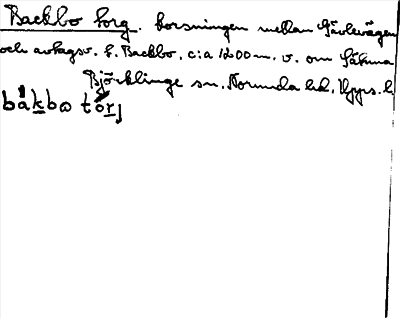 Backbo torg. korsningen mellan Gävlevägen
och avtagsv. t. Backbo, c:a 1200 m. v. om Sätuna
Björklinge sn, Norunda hd, Upps. l.
båkbɷ tórj